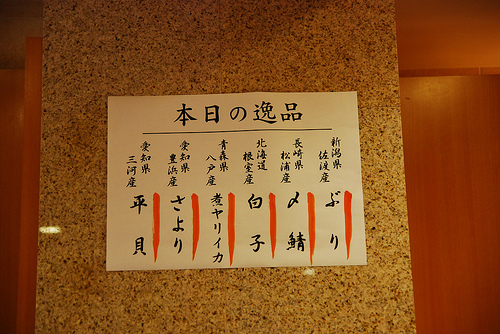 本日の逸品
新潟県
佐渡産
ぶり
長崎県
松浦産
〆鯖
北海道
根室産
白子
青森県
八戸産
煮ヤリイカ
愛知県
豊浜産
さより
愛知県
三河産
平貝